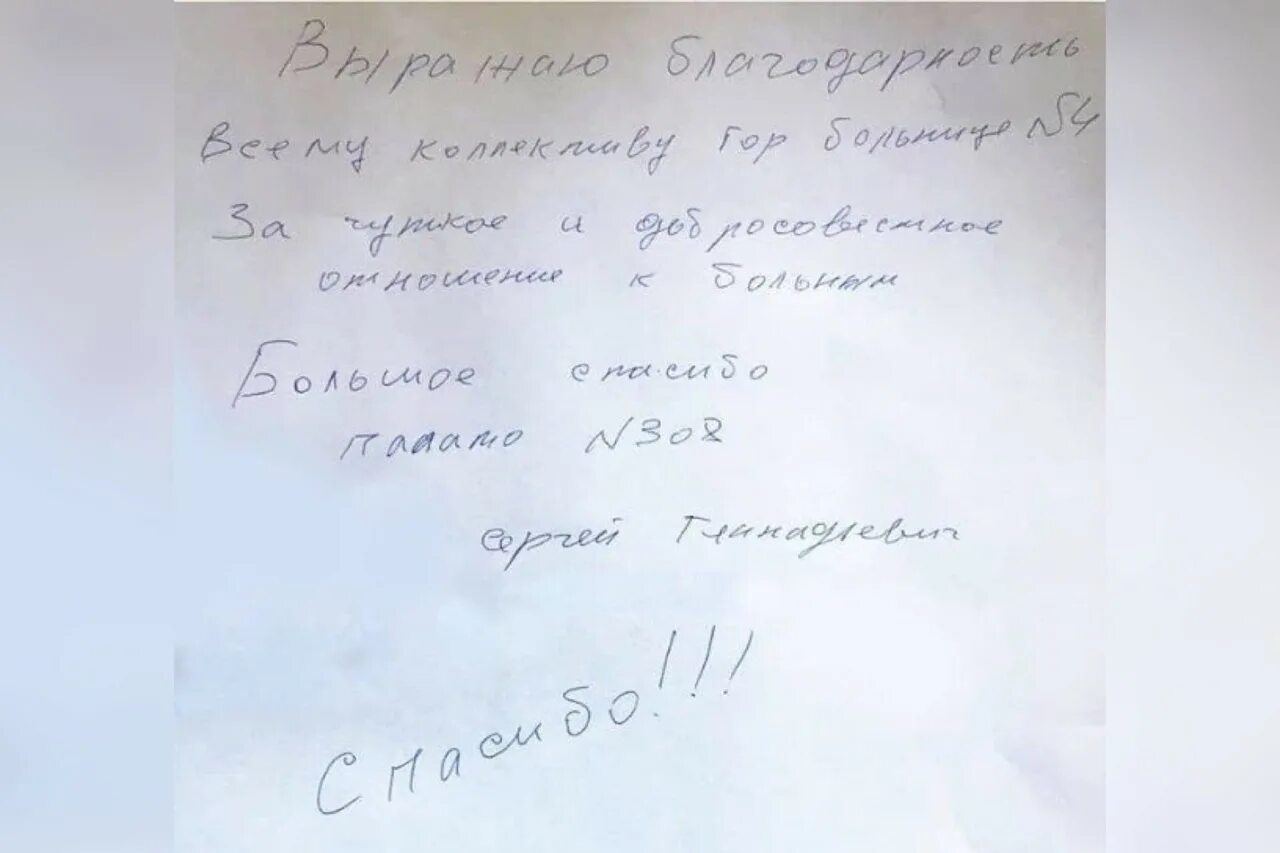 Выражаю благодарность
Всему коллективу гор больнице №4
За чуткое и добросовестное
отношение к больным
Большое спасибо
палато N308
Сергей Геннадиевич
Спасибо!!!